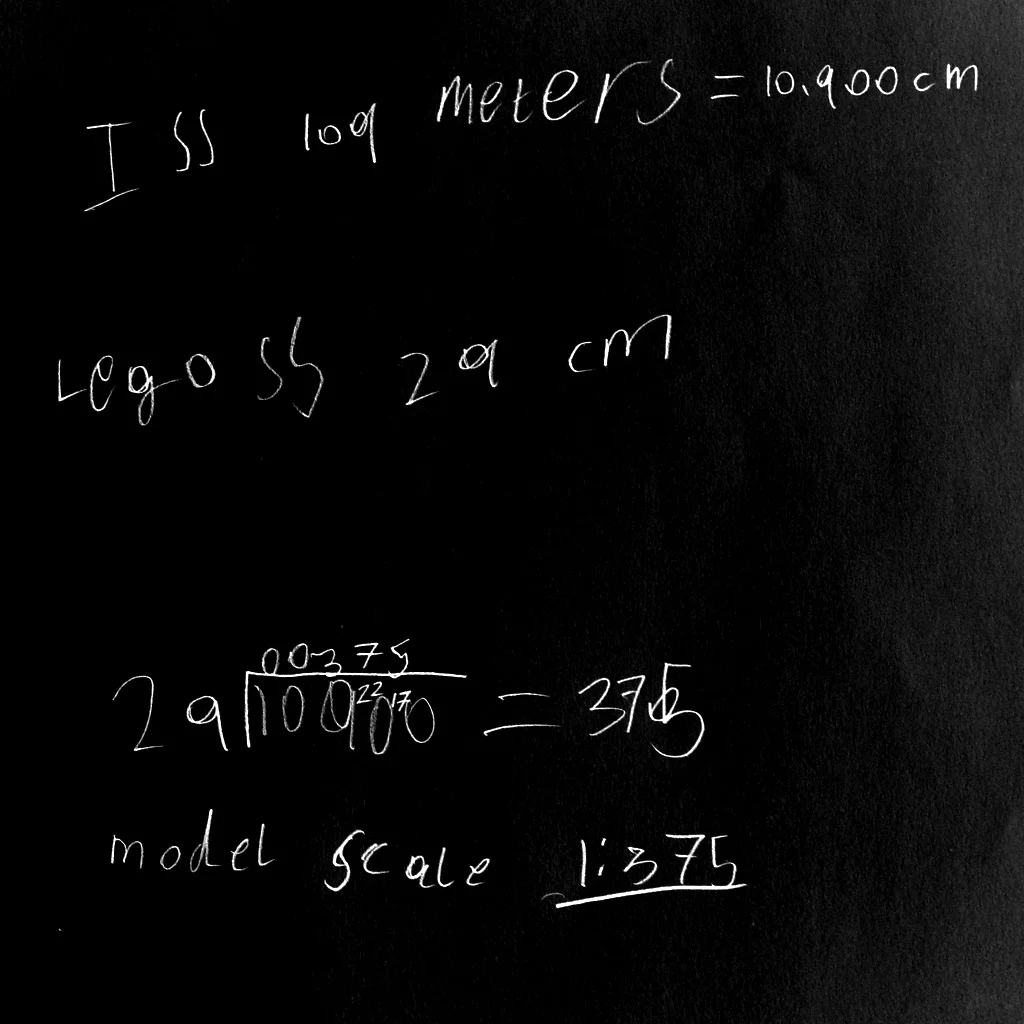 ISS 109 meters = 10.900 cm
Lego SS 29 cm
00375
29 10922017 0 = 375
model scale 1:375